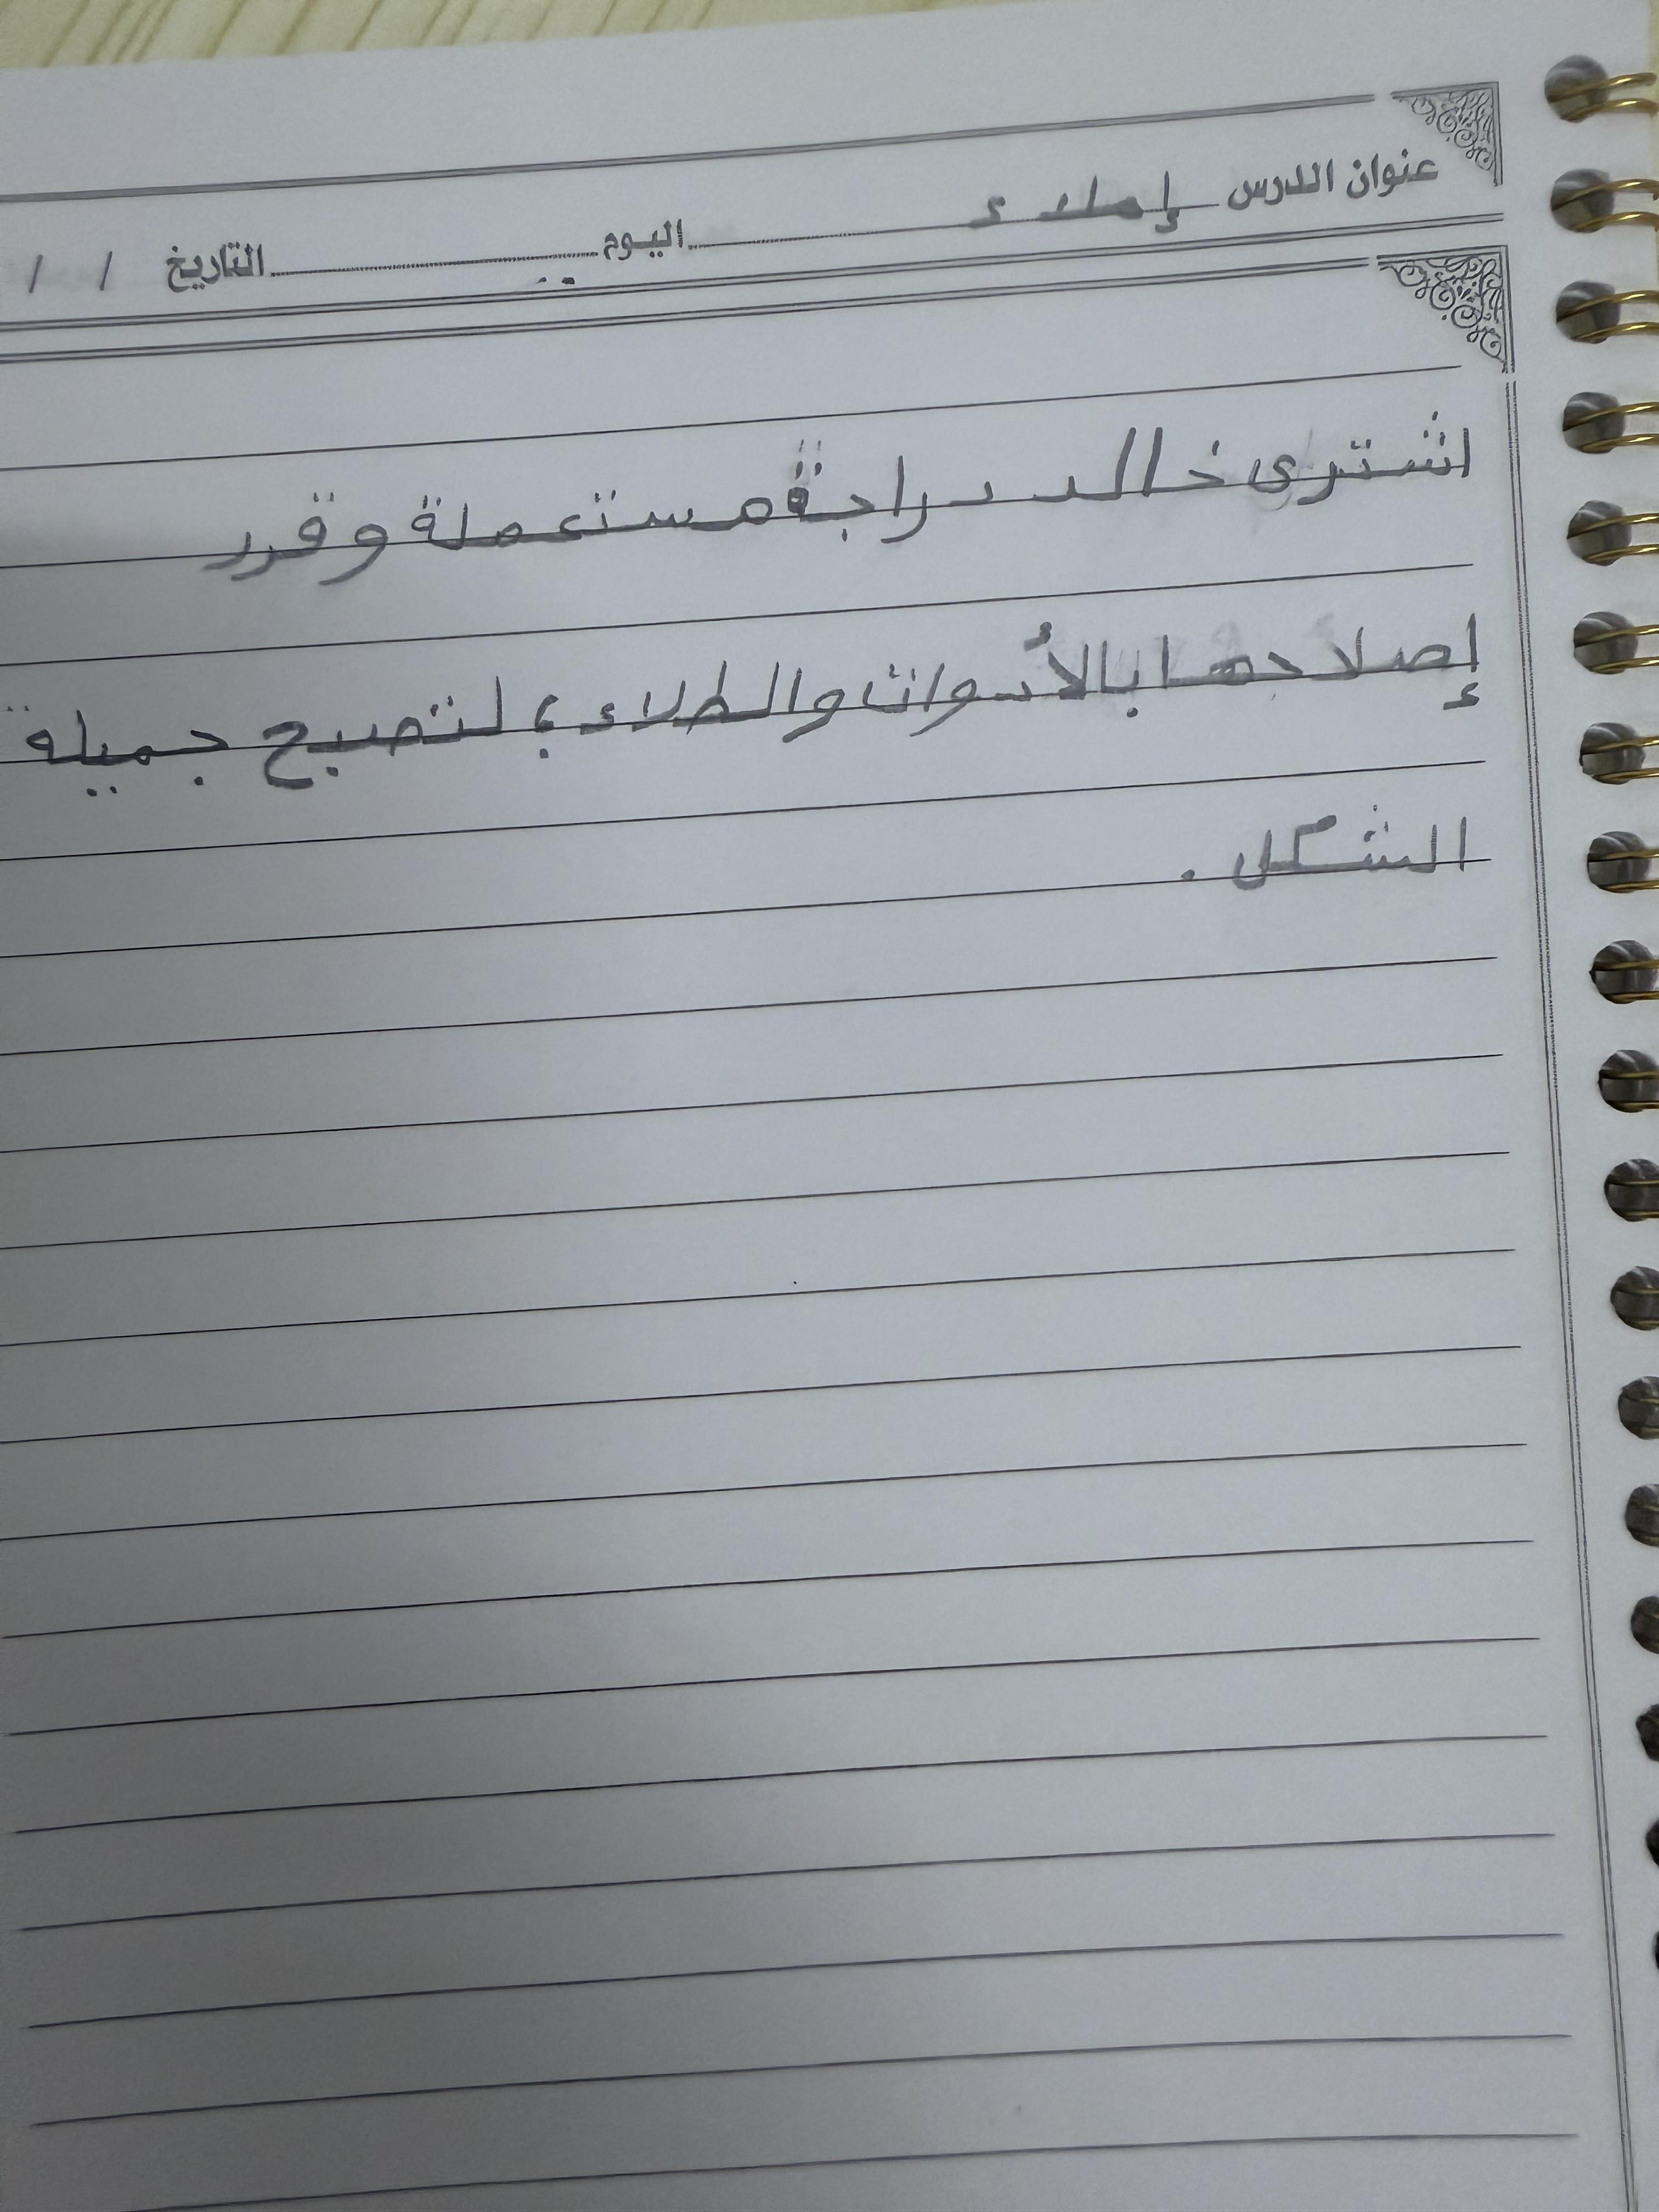 عنوان الدرس إملاء اليوم التاريخ / /
اشترى خالد دراجة مستعملة وقرر
إصلاحها بالأدوات والطلاء؛ لتصبح جميلة
الشكل.